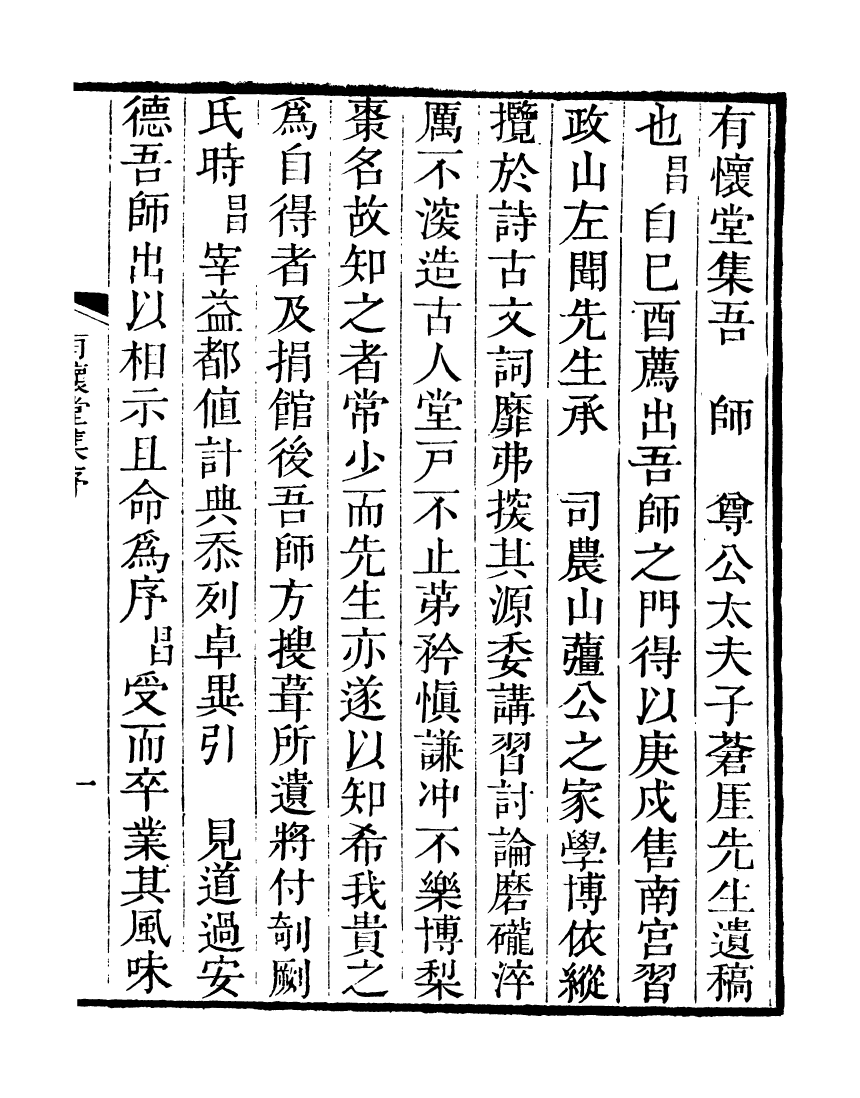 有懷堂集吾　師　尊公太夫子蒼厓先生遺稿
也昌自巳酉薦出吾師之門得以庚戌售南宮習
政山左聞先生承　司農山薑公之家學博依縱
攬於詩古文詞靡弗搂其源委講習討論磨礲淬
厲不湥造古人堂戸不止苐矜慎謙冲不樂博梨
棗名故知之者常少而先生亦遂以知希我貴之
爲自得者及捐館後吾師方搜葺所遺將付剞劂
氏時昌宰益都値計典忝列卓異引　見道過安
德吾師出以相示且命爲序昌受而卒業其風味
有懷堂集序
一